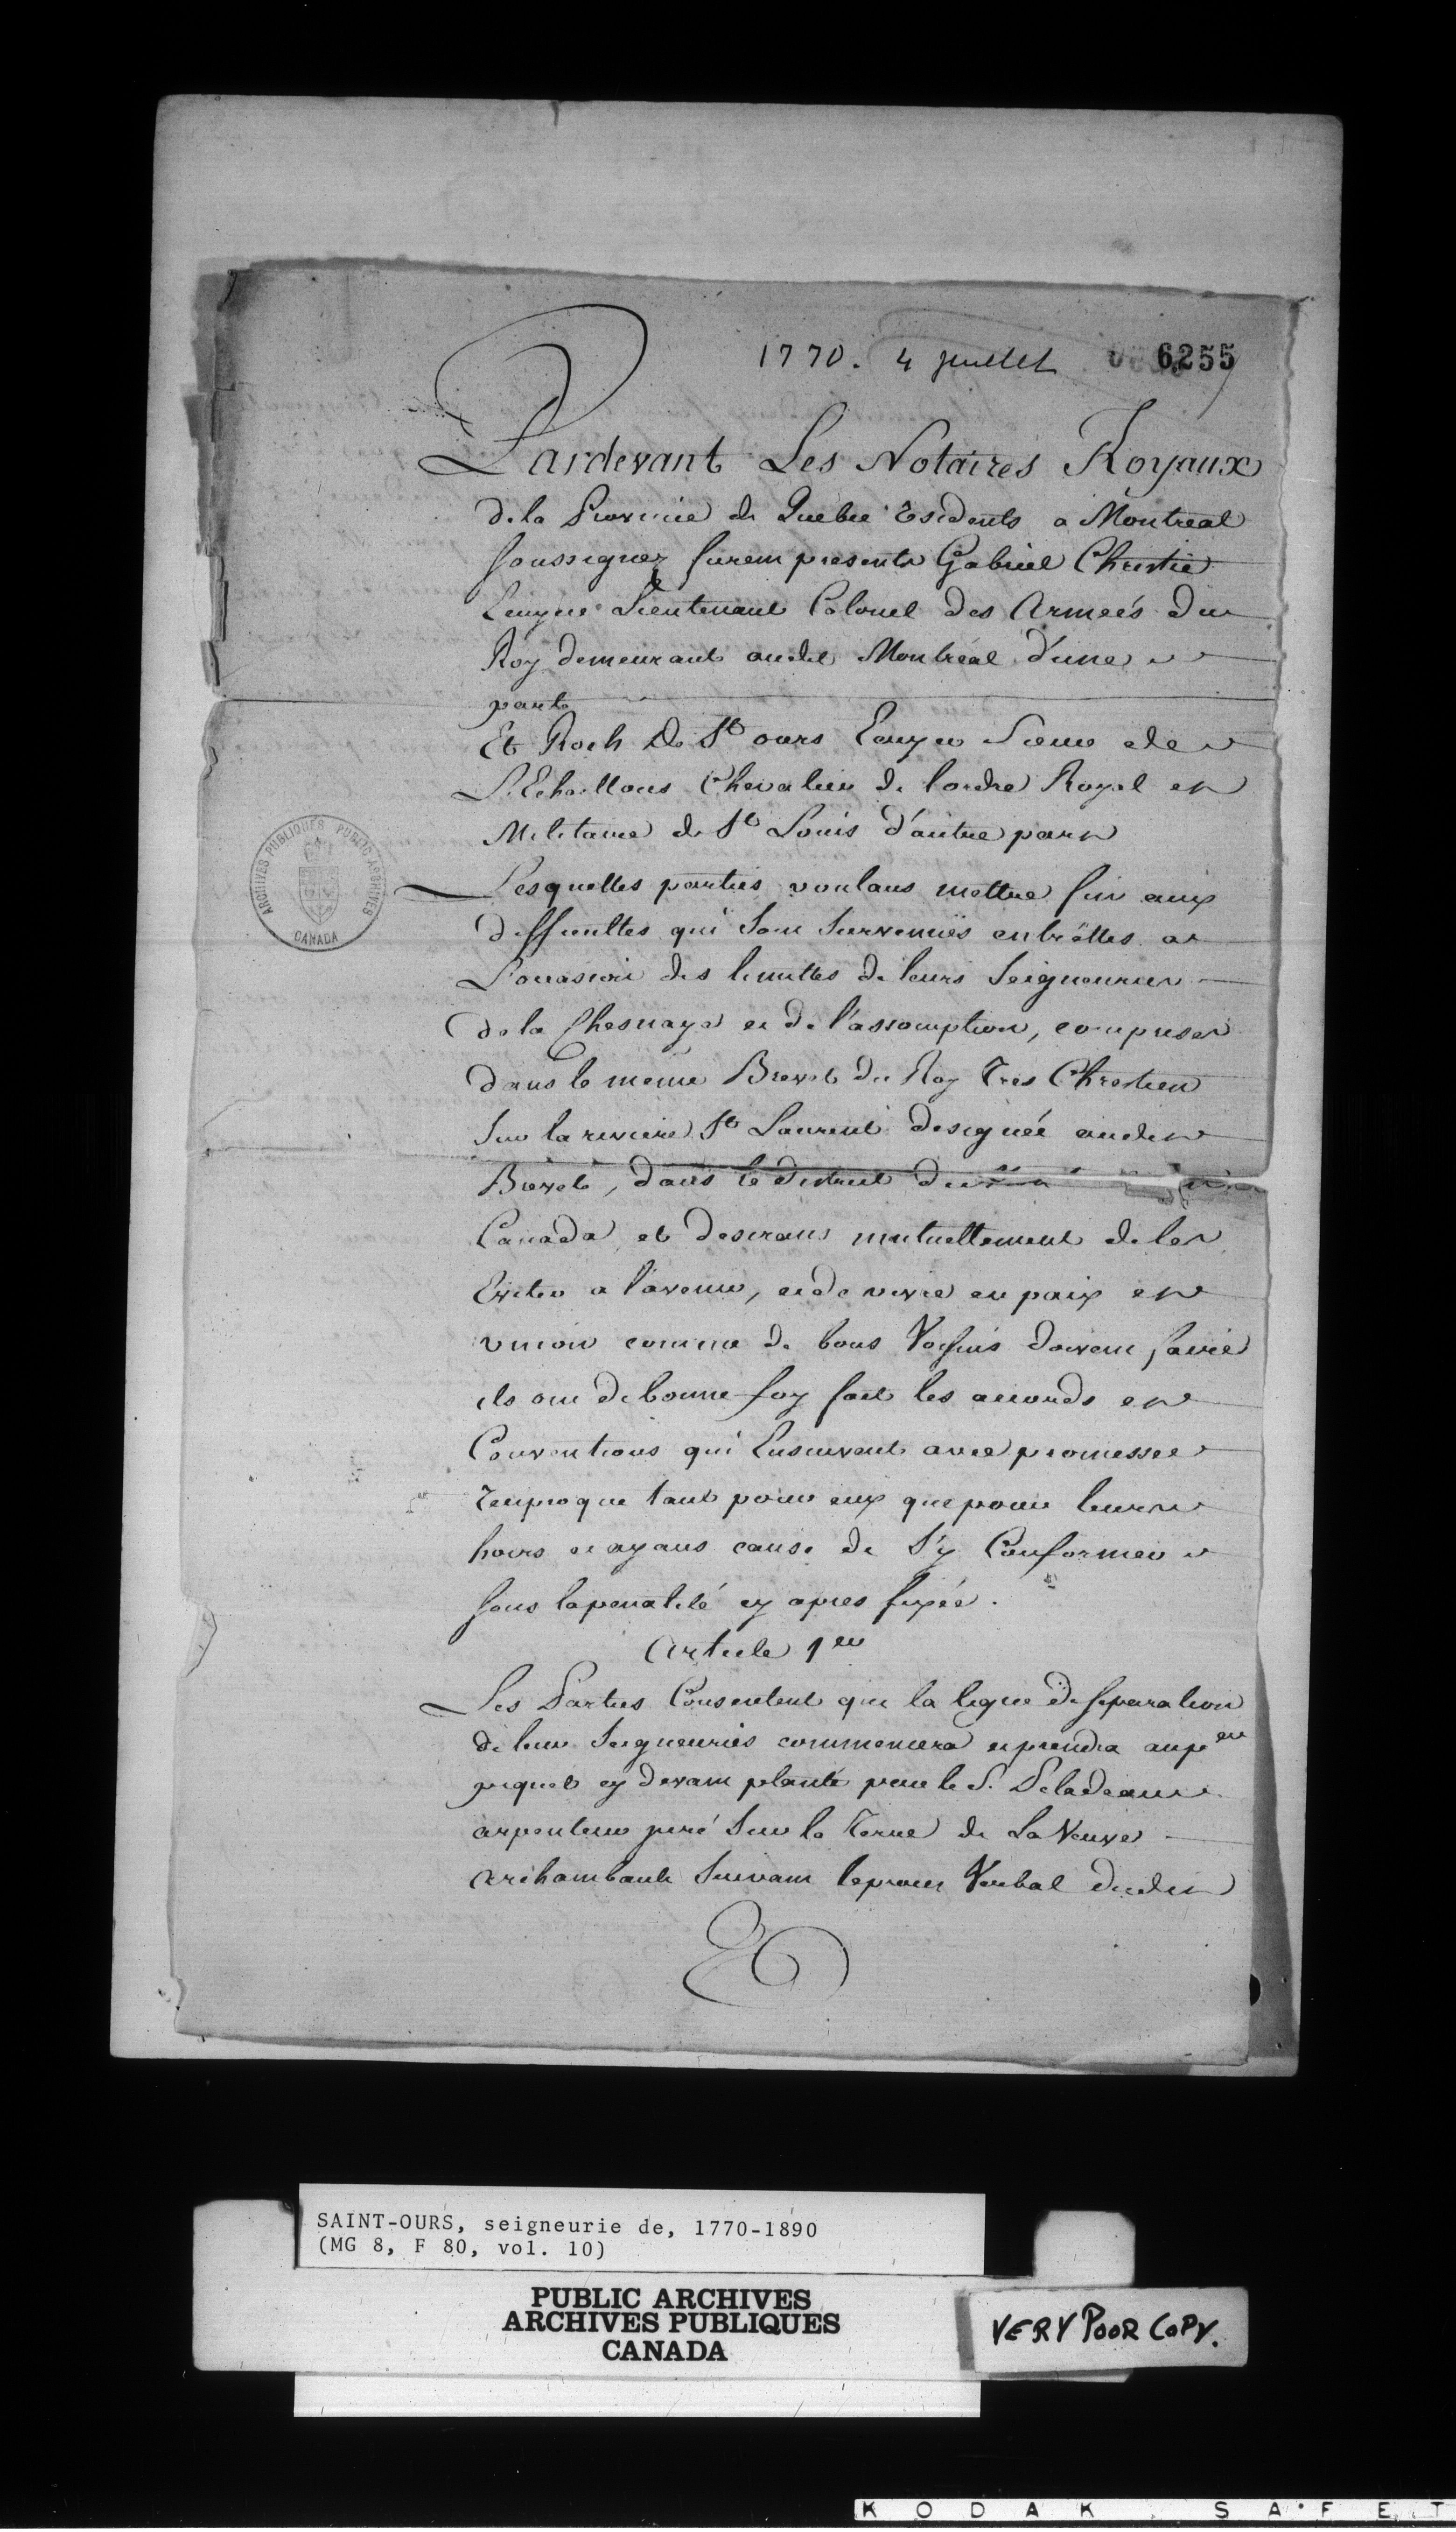 1770. 4 juillet 6255
Pardevant Les Notaires Royaux
de la Province de Quebec Residents a Montreal
soussignez furent presents Gabriel Christie
Ecuyer Lieutenant Colonel des Armeés du
Roy demeurant audit Montréal d'une
part
Et Roch De St ours Ecuyer Sieur de
L'Echaillons Chevalier de l'ordre Royal et
Militaire de St Louis d'autre part
Lesquelles parties voulans mettre fin aux
difficultes qui sont survenuës entrëlles a
L'occasion des limittes de leurs Seigneuries
de la Chesnaye et de l'assomption, comprises
dans le même Brevet du Roy Tres Chretien
sur la riviere St Laurent designée audit
Brevet, dans le district du
Canada, et desirans mutuellement de les
Eviter a l'avenir, et de vivre en paix et
union comme de bons Voisins doivent faire
ils ont de bonne foy fait les accords et
Conventions qui Ensuivent avec promesse
Reciproque tant pour eux que pour leurs
hoirs et ayans cause de s'y Conformer
sous la penalité cy apres fixée.
Article 1er
Les Parties Consentent que la ligne de separation
de leurs Seigneuries commencera et prendra au per
piquet cy devant planté par le S. Peladeau
arpenteur juré sur la Terre de La Veuve
Archambault suivant le procez Verbal dudit
ARCHIVES PUBLIQUES PUBLIC ARCHIVES
CANADA
SAINT-OURS, seigneurie de, 1770-1890
(MG 8, F 80, vol. 10)
PUBLIC ARCHIVES
ARCHIVES PUBLIQUES
CANADA
VERY POOR COPY.
KODAK SAFET